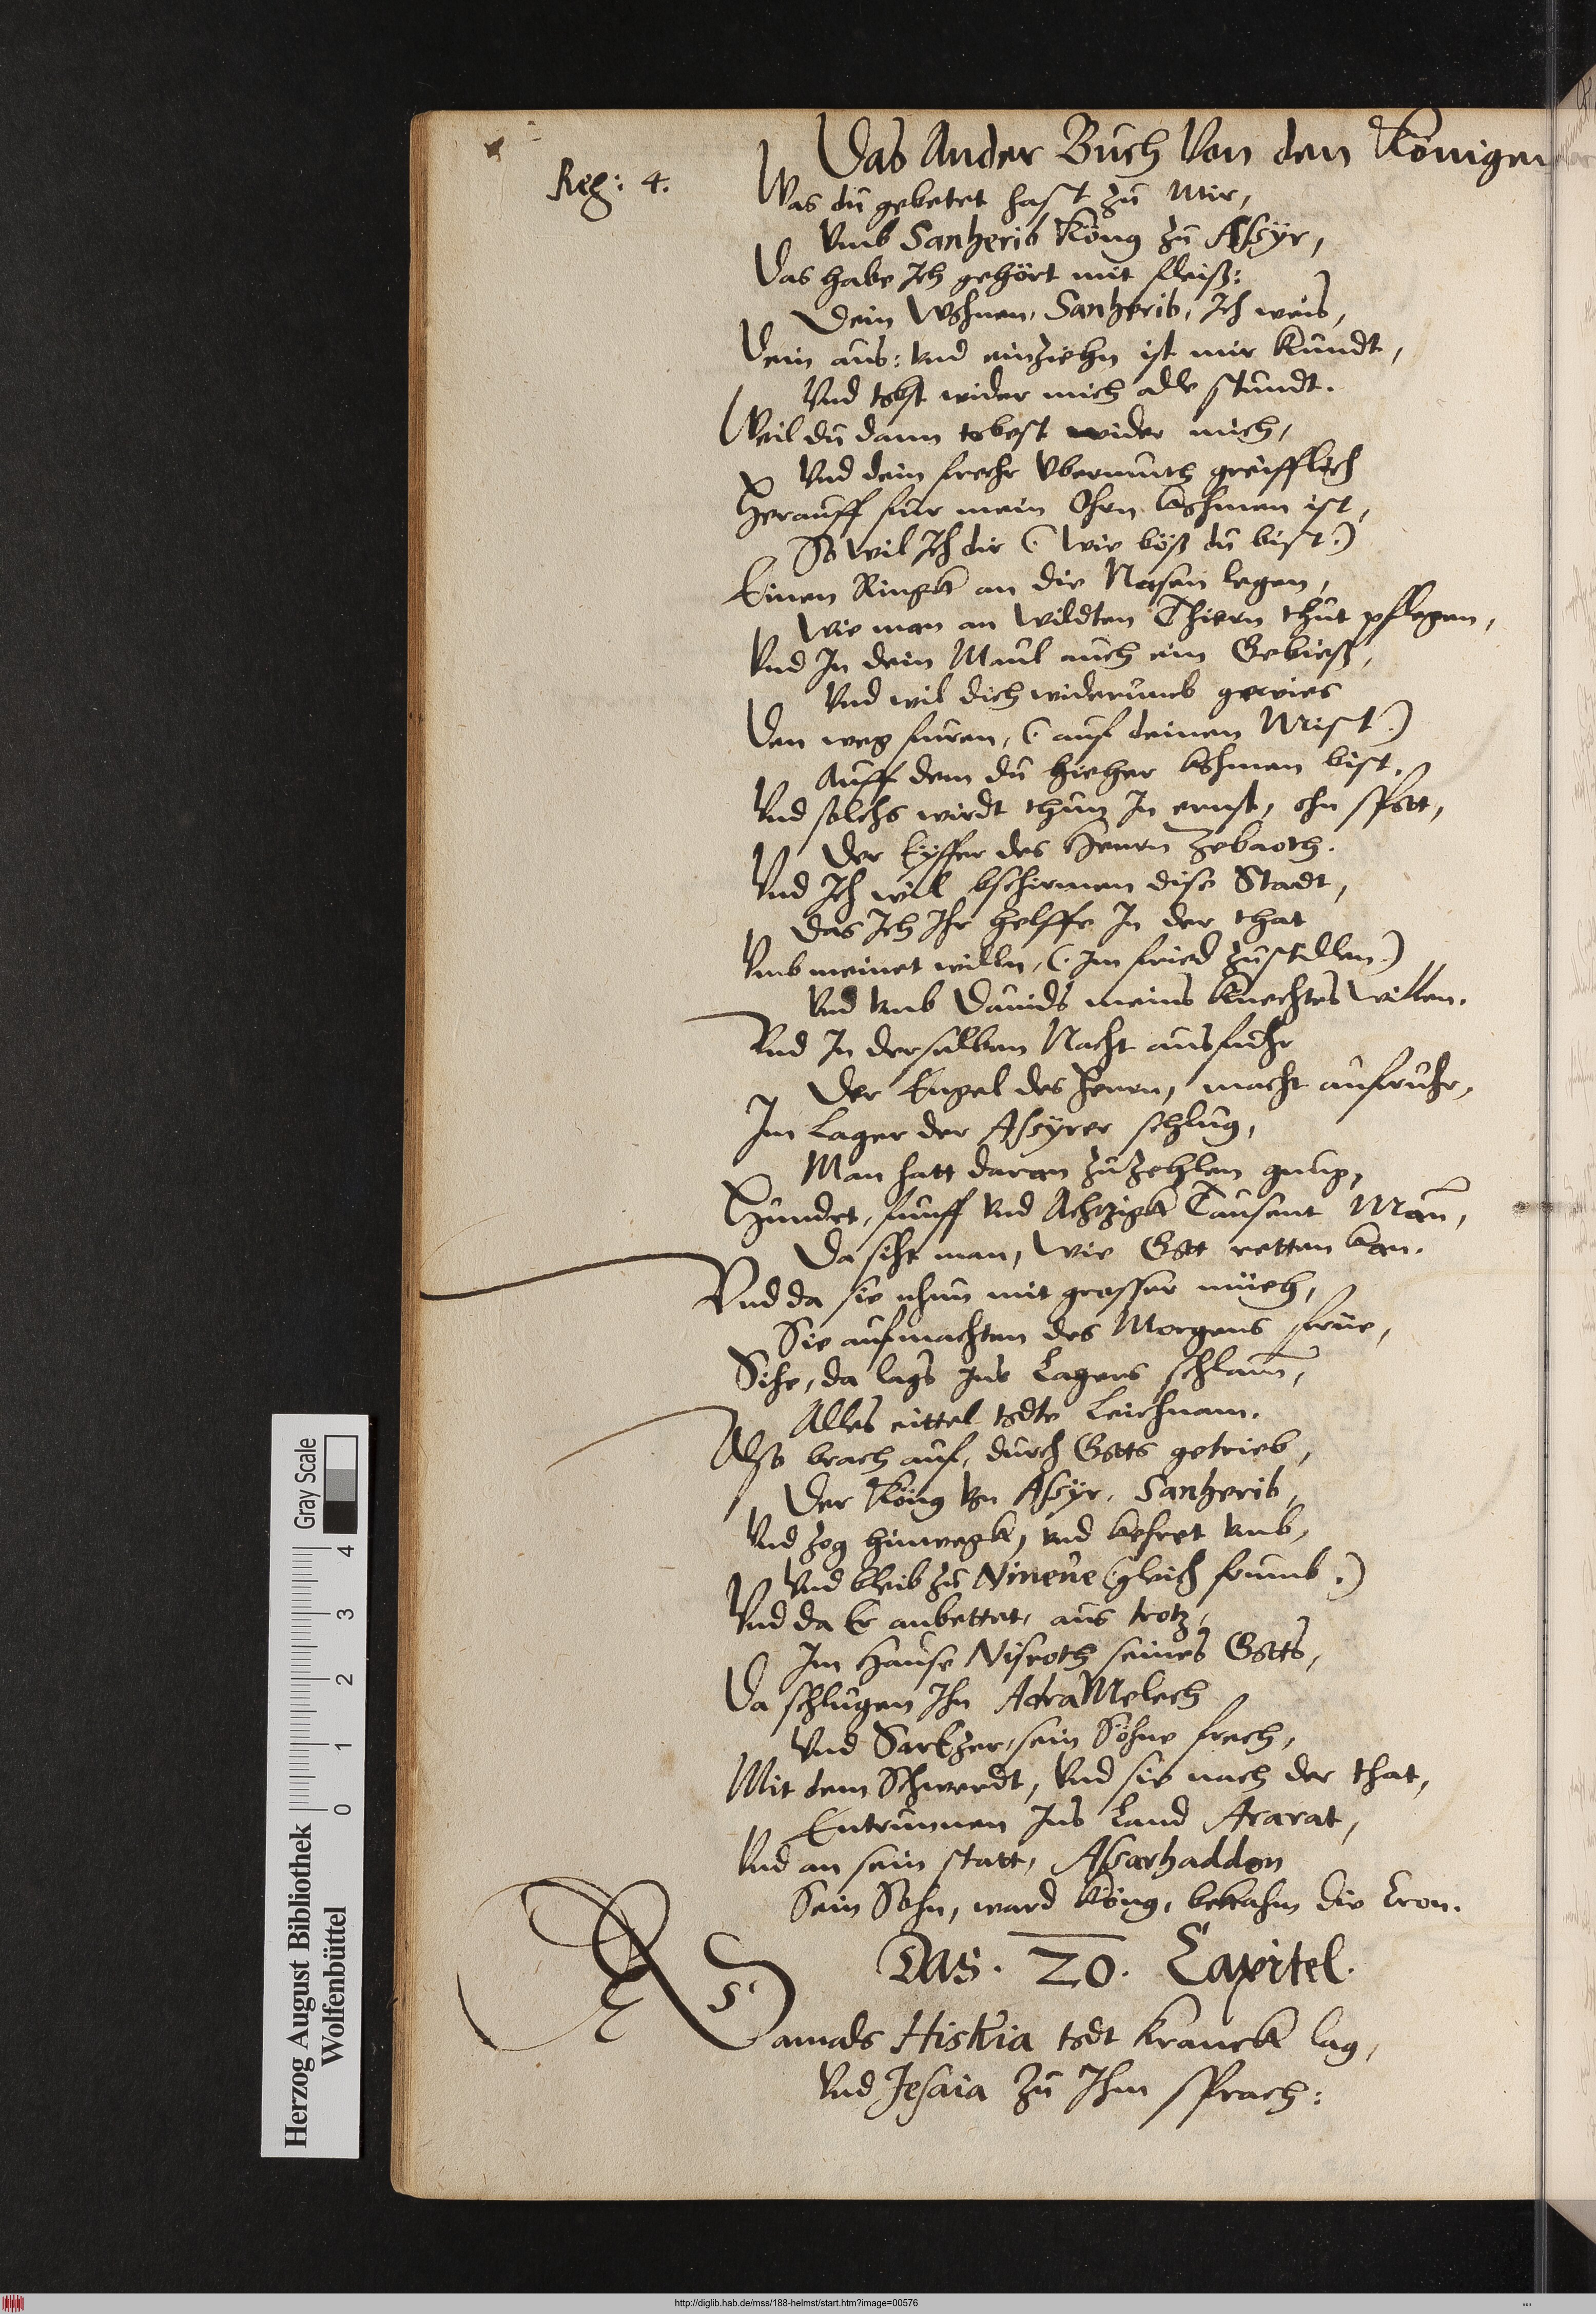 Das Ander Buch Von den Königen
Reg: 4.
Was du gebetet hast zu Mir,
Vmb Sanherib König zu Assyr,
Das habe Ich gehört mit fleiß:
Dein Wohnen, Sanherib, Ich weis,
Dein aus: vnd einziehn ist mir kundt,
Vnd tobst wider mich alle stundt.
Weil du dann tobest wider mich,
Vnd dein frecher Vbermuth greifflich
Herauff fuir mein Ohrn kohmen ist,
So wil Ich dir (. wie böß du bist.)
Einen Ringk an die Nasen legen,
Wie man an Wildten Thiern thut pflegen,
Vnd In dein Maul auch ein Gebieß,
Vnd wil dich widerumb gewies
Den weg furen, (. auf deinen Mist.)
Auff dem du hieher kohmen bist.
Vnd solchs wirdt thun In ernst, ohn spott,
Der Eyffer des Herrn Zebaoth.
Vnd Ich will bschirmen dise Stadt,
Das Ich Ihr helffe In der that
Vmb meinet willn, (. Im fried zustillen.)
Vnd vmb Dauids meins Knechtes willen.
Vnd In derselben Nacht ausfuhr
Der Engel des Herrn, macht aufruhr,
Im Lager der Assyrer schlug,
Man hatt daran zuzehlen gnug,
Hundet, funff vnd Achtzigk Tausent Man̄,
Da siht man, Wie Gott retten kan.
Vnd da sie nhun mit grosser müeh,
Sie aufmachten des Morgens früe,
Sihe, da lags Ins Lagers schlam̄,
Alles eittel todte Leichnam.
Also brach auf, durch Gotts getrieb,
Der König von Assyr, Sanherib,
Vnd zog hinwegk, vnd kehret vmb,
Vnd bleib zu Nineue (gleich frumb.)
Vnd da Er anbettet, aus trotz,
Im Hause Nisroth seines Gotts,
Da schlugen Ihn AdraMelech
Vnd SarEzer, sein Söhne frech,
Mit dem Schwerdt, Vnd sie nach der that,
Entrunnen Ins Land Ararat,
Vnd an sein statt, Assarhaddon
Sein Sohn, ward König, bekahm die Cron.
Das. 20. Capitel.
Damals Hiskia todt kranck lag,
Vnd Jesaia zu Ihm sprach:
Herzog August Bibliothek
Wolfenbüttel
0 1 2 3 4
Gray Scale
http://diglib.hab.de/mss/188-helmst/start.htm?image=00576